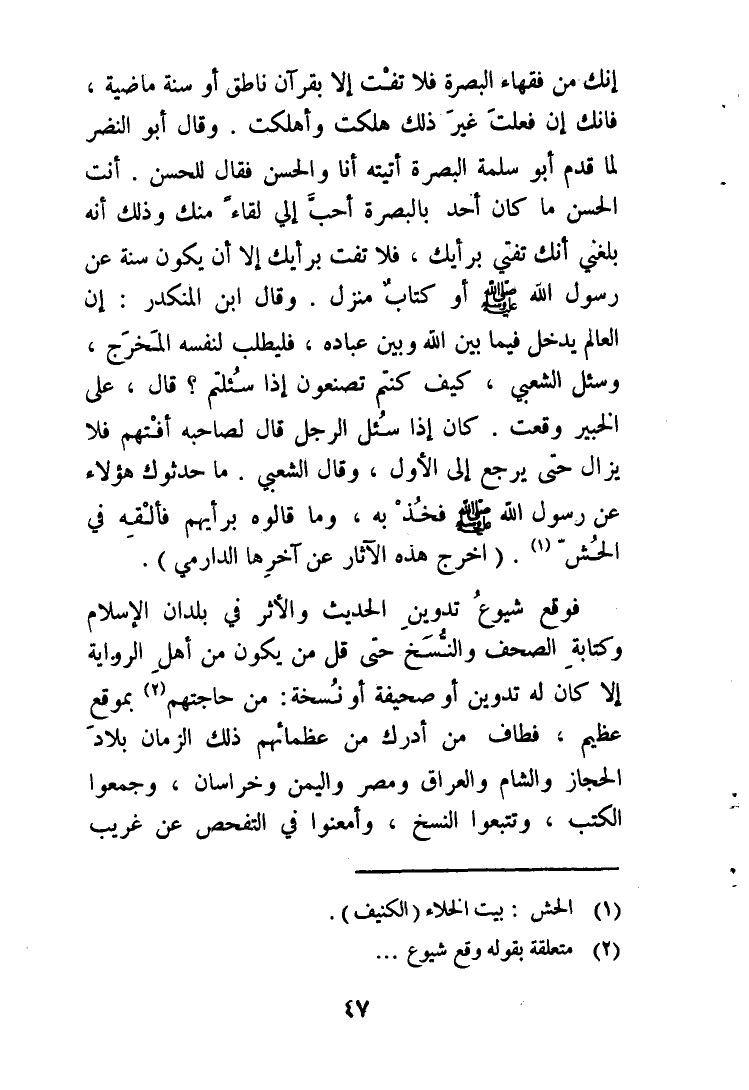 إنك من فقهاء البصرة فلا تفتْ إلا بقرآن ناطق أو سنة ماضية ،
فانك إن فعلتَ غيرَ ذلك هلكت وأهلكت . وقال أبو النضر
لما قدم أبو سلمة البصرة أتيته أنا والحسن فقال للحسن . أنت
الحسن ما كان أحد بالبصرة أحبَّ إلي لقاءً منك وذلك أنه
بلغني أنك تفتي برأيك ، فلا تفت برأيك إلا أن يكون سنة عن
رسول الله ﷺ أو كتابٌ منزل . وقال ابن المنكدر : إن
العالم يدخل فيما بين الله وبين عباده ، فليطلب لنفسه المَخرَج ،
وسئل الشعبي ، كيف كنتم تصنعون إذا سُئلتم ؟ قال ، على
الخبير وقعت . كان إذا سُئل الرجل قال لصاحبه أفْتهم فلا
يزال حتى يرجع إلى الأول ، وقال الشعبي . ما حدثوك هؤلاء
عن رسول الله ﷺ فخُذْ به ، وما قالوه برأيهم فألْقه في
الحُشّ (١) . ( اخرج هذه الآثار عن آخرِها الدارمي ) .
فوقع شيوعُ تدوينِ الحديث والأثر في بلدان الإسلام
وكتابةِ الصحف والنُّسَخ حتى قل من يكون من أهلِ الرواية
إلا كان له تدوين أو صحيفة أو نُسخة: من حاجتهم(٢) بموقع
عظيم ، فطاف من أدرك من عظمائهم ذلك الزمان بلادَ
الحجاز والشام والعراق ومصر واليمن وخراسان ، وجمعوا
الكتب ، وتتبعوا النسخ ، وأمعنوا في التفحص عن غريب
(١) الحش : بيت الخلاء (الكنيف) .
(٢) متعلقة بقوله وقع شيوع ...
٤٧